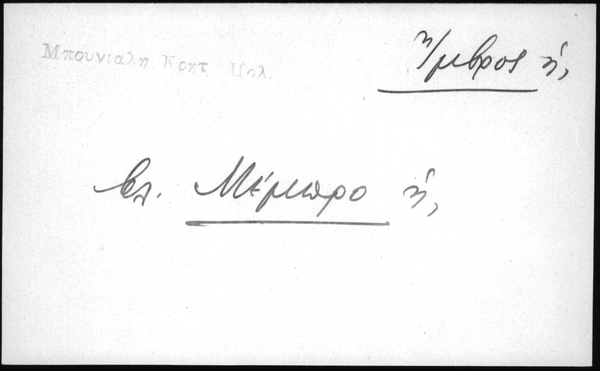 Μπουνιαλη Κρητ. Πολ.
Ἴμβρος ἡ,
βλ. Μέμπρο ἡ,